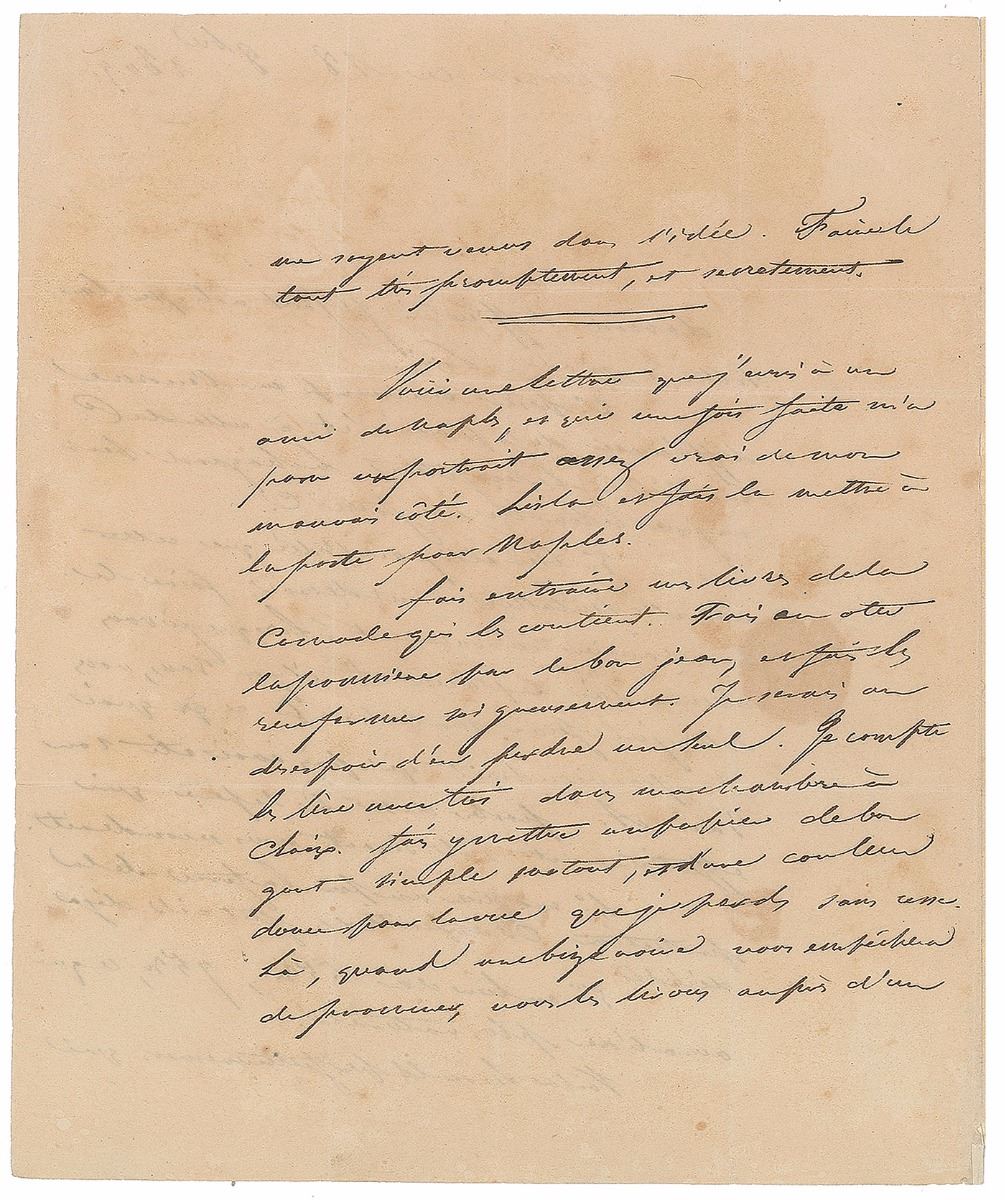 me soyent venus dans l'idée. Faire le
tout très promptement, et secretement.
Voici une lettre que j'écris à un
ami de Naples, et qui une fois faite m'a
paru un portrait assez vrai de mon
mauvais côté. Lis la et fais la mettre à
la poste pour Naples.
fais entraire mes livres de la
Comode qui les contient. Fais en oter
la poussiere par le bon jean, et fais les
renfermer soigneusement. Je serais au
desespoir d'en perdre un seul. Je compte
les lire avec toi dans ma chambre à
Claix. fais y mettre un papier de bon
gout simple surtout, et d'une couleur
douce pour la vue que je perds sans cesse.
Là, quand une bize noire nous empêchera
de promener, nous les lirons auprès d'un